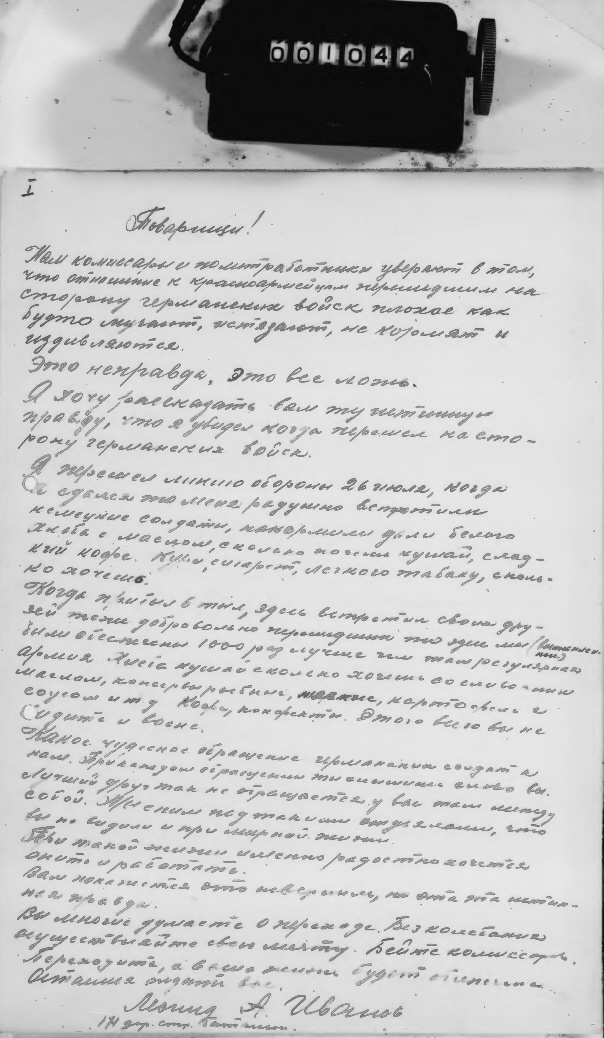 001044
I
Товарищи!
Нам комиссары и политработники уверяют в том,
что отношение к красноармейцам перешедшим на
сторону германских войск плохое как
будто мучают, истязают, не кормят и
издивляются.
Это неправда, это все ложь.
Я хочу рассказать вам ту истинную
правду, что я увидел когда перешел на сто-
рону германских войск.
Я перешел линию обороны 26 июля, когда
я сдался то меня радушно встретили
немецкие солдаты, накормили дали белого
хлеба с маслом, сколько хочешь кушай, слад-
кий кофе. Кури, сигарет, легкого табаку, сколь-
ко хочешь.
Когда прибыл в тыл, здесь встретил своих дру-
зей тоже добровольно перешедших то здесь мы
были обеспечены 1000 раз лучше чем там регулярная
армия. Хлеба кушай сколько хочешь со сливочным
маслом, консервы рыбные, картофель с
соусом и т д кофе, конфекты. Этого всего вы не
видите и во сне.
Какое чудесное обращение германских солдат к
нам. При каждом обращении ты слышишь слово вы.
Лучший друг так не обращается у вас там между
собой. Мы спим под такими одеялами, что
вы не видели и при мирной жизни.
При такой жизни именно радостно хочется
жить и работать.
Вам покажется это неверным, но это истин-
ная правда.
Вы многие думаете о переходе. Без колебания
осуществляйте свою мечту. Бейте комиссаров.
Переходите, а ваша жизнь будет
Остаюсь ждать вас.
Леонид А. Иванов
171 стр. батальон.